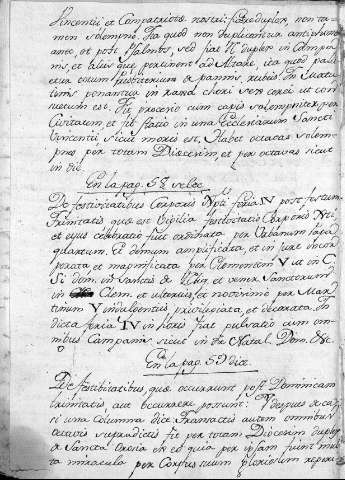 Vincentii et Compatriote nostri: fit duplex, non ta-
men solempne. Ita quod non duplicantur antiphone
ante et post Psalmos sed fiat ut duplex in Campa-
nis, et aliis que pertinent ad Altare, ita quod pali
circa presbiterium de pannis rubeis. In
tinis in chori sex cerei ut con-
suetum est. Fit procesio cum capis solempniter per
Civitatem et fit statio in una Ecclesiarum Sancti
Vincentii sicut moris est. Habet octavas solem-
pnes per totam Diocesim, et per octavas sicut
in die.
En la pag. 52 velloc.
De festivitatibus Corporis Xpti feria IV post festum
Trinitatis que est Vigilia festivitatis Corporis Xti
et ejus celebratio fuit ordinata per Urbanum Papa
quartum. Et demum amplificata, et in jure incor-
porata et magnificata per Clementem V ut in C.
Si dom. in Sanctis de Reliq. et vener. Sanctorum
in Clem. et ulterius, et novissime per Mar-
tinum V indulgentiis privilegiata, et decorata. In
dicta feria IV in horis fiat pulsatio cum om-
nibus Campanis sicut in die Natal. Dom. &c.
En la pag. 59 dice.
De festibitatibus, que occurrunt post Dominicam
trinitatis aut occurrere possunt: Y despues de ca-
si una columna dice Transactis autem omnibus
octavis supradictis fit per totam Diocesim duplex
de Sancta et quia per ipsam fiunt mul-
ta miracula per Corpus suum gloriosum